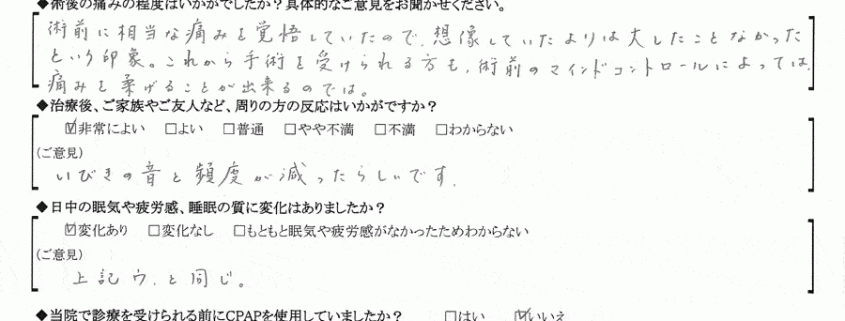 ◆術後の痛みの程度はいかがでしたか？具体的なご意見をお聞かせください。
術前に相当な痛みを覚悟していたので、想像していたよりは大したことなかった
という印象。これから手術を受けられる方も、術前のマインドコントロールによっては、
痛みを柔げることが出来るのでは。
◆治療後、ご家族やご友人など、周りの方の反応はいかがですか？
☑非常によい □よい □普通 □やや不満 □不満 □わからない
(ご意見)
いびきの音と頻度が減ったらしいです。
◆日中の眠気や疲労感、睡眠の質に変化はありましたか？
☑変化あり □変化なし □もともと眠気や疲労感がなかったためわからない
(ご意見)
上記ウ.と同じ。
◆当院で診療を受けられる前にCPAPを使用していましたか？ □はい ☑いいえ